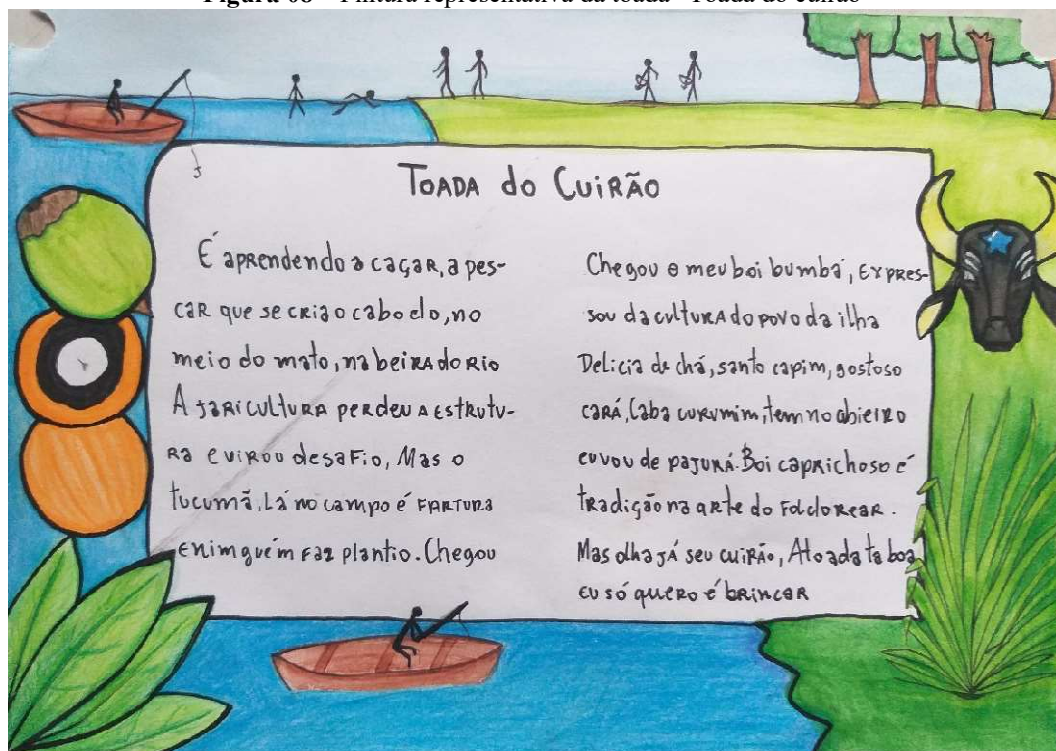 Figura 08 – Pintura representativa da toada "Toada do cuirão"
TOADA do CUIRÃO
É aprendendo a caçar, a pes-
car que se cria o caboclo, no
meio do mato, na beira do Rio
A jaricultura perdeu a estrutu-
ra e virou desafio, Mas o
tucumã, Lá no campo é fartura
e nimguém faz plantio. Chegou
Chegou o meu boi bumbá, Expres-
sou da cultura do povo da ilha
Delicia de chá, santo capim, gostoso
cará, Caba curumim, tem no abieiro
eu vou de pajurá. Boi caprichoso é
tradição na arte do Folclorear.
Mas olha já seu cuirão, A toada ta boa
eu só quero é brincar